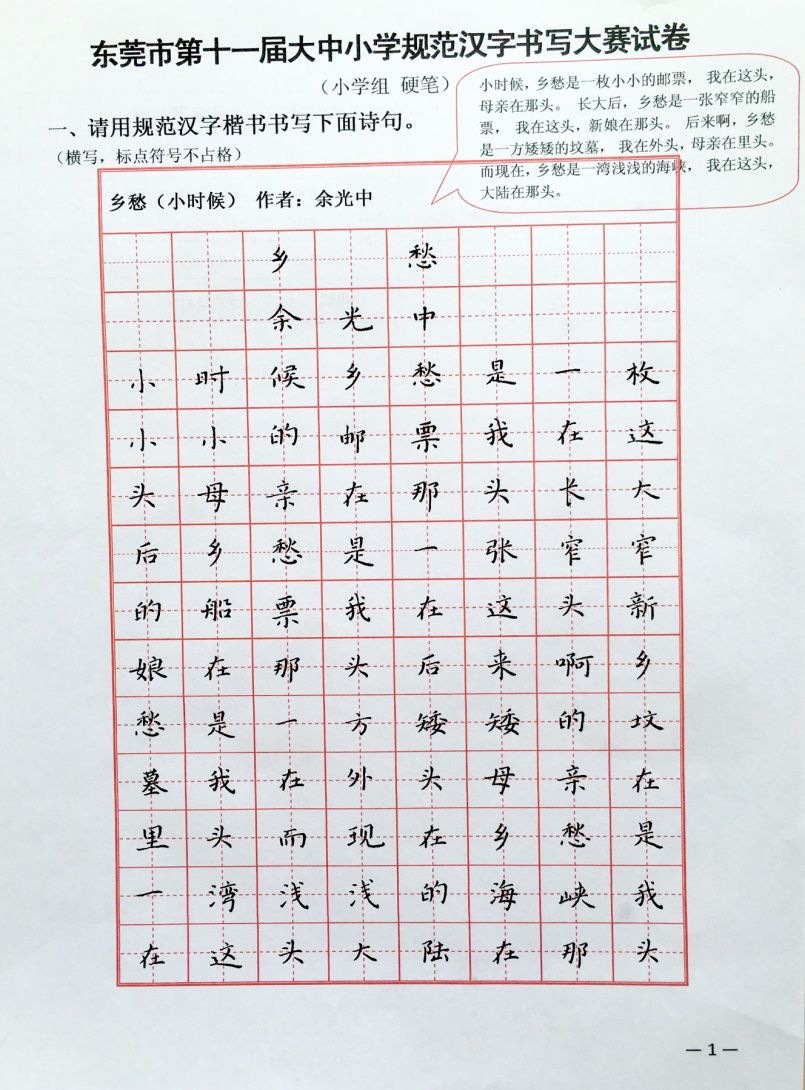 东莞市第十一届大中小学规范汉字书写大赛试卷
（小学组 硬笔）
小时候，乡愁是一枚小小的邮票， 我在这头，
母亲在那头。 长大后，乡愁是一张窄窄的船
票， 我在这头，新娘在那头。 后来啊，乡愁
是一方矮矮的坟墓， 我在外头，母亲在里头。
而现在，乡愁是一湾浅浅的海峡， 我在这头，
大陆在那头。
一、请用规范汉字楷书书写下面诗句。
（横写，标点符号不占格）
乡愁（小时候） 作者：余光中
乡愁
余光中
小时候乡愁是一枚
小小的邮票我在这
头母亲在那头长大
后乡愁是一张窄窄
的船票我在这头新
娘在那头后来啊乡
愁是一方矮矮的坟
墓我在外头母亲在
里头而现在乡愁是
一湾浅浅的海峡我
在这头大陆在那头
— 1 —